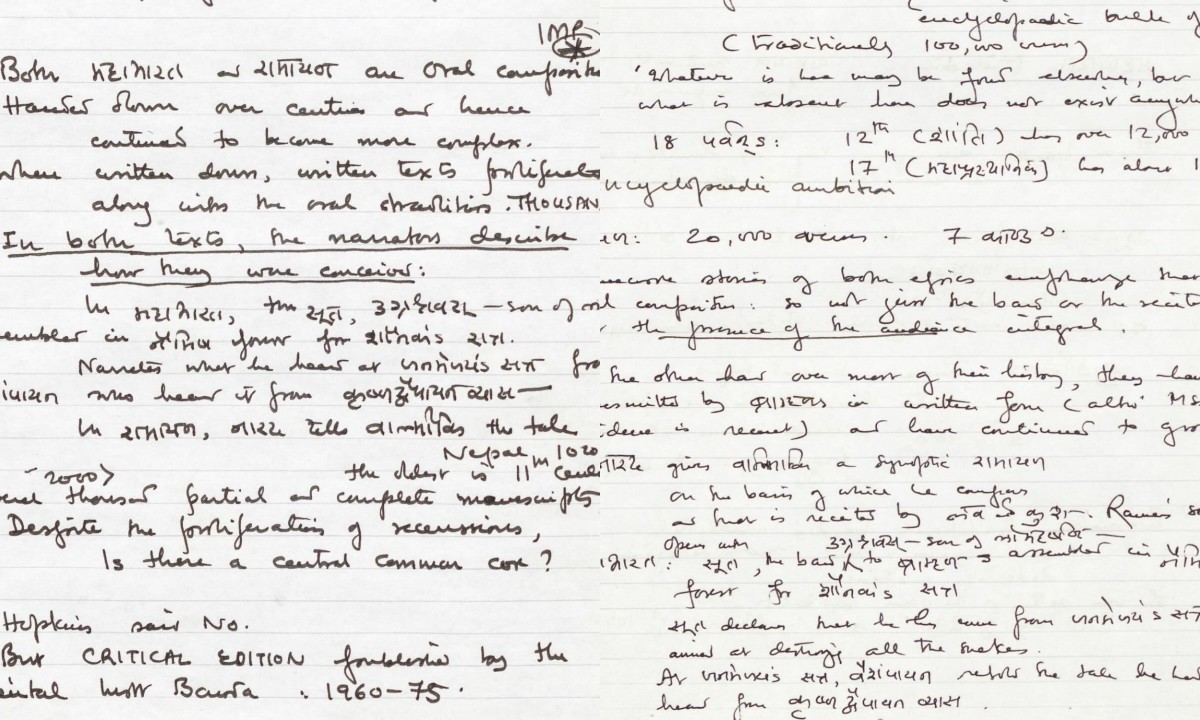 IMP
Both મહાભારત or રામાયણ are Oral composite
Handed down over centuries and hence
continued to become more complex.
when written down, written texts proliferate
along with the oral traditions. THOUSAN
In both texts, the narrators describe
how they were conceived:
In મહાભારત, the સૂત, ઉગ્રશ્રવસ – son of
assembler in નૈમિષ forest for શૌનક's સત્ર.
Narrates what he heard at જનમેજય's સત્ર fro
who heard it from કૃષ્ણદ્વૈપાયન વ્યાસ –
In રામાયણ, નારદ tells વાલ્મીકિ the tale
Nepal 1020
2000> the oldest is 11th Cent
thousand partial or complete manuscripts
Despite the proliferation of recensions,
Is there a central common core?
Hopkins said No.
But CRITICAL EDITION published by the
ental Inst Baroda : 1960–75.
encyclopaedic bulk of
(traditionally 100,000 verses)
'Whatever is here may be found elsewhere, but
what is absent here does not exist anywh
18 પર્વs: 12th (શાંતિ) has over 12,000
17th (મહાપ્રસ્થાનિક) has alone 1
ncyclopaedic ambition
20,000 verses. 7 કાંડ
stories of both epics emphasize their
oral composition: so not just the bard or the recite
the presence of the audience integral.
the other hand over most of their history, they ha
smitted by બ્રાહ્મણs in written form (altho' MS
dence is recent) and have continued to gro
નારદ gives વાલ્મીકિ a synoptic રામાયણ
on the basis of which he composes
and that is recited by લવ and કુશ. Rama's so
opens with ઉગ્રશ્રવસ – son of લોમહર્ષણ –
ભારત: સૂત, the bard to બ્રાહ્મણs assembled in નૈમિ
forest for શૌનક's સત્ર
સૂત declares that he has come from જનમેજય's સત્
aimed at destroying all the snakes.
At જનમેજય's સત્ર, વૈશંપાયન retold the tale he had
heard from કૃષ્ણ દ્વૈપાયન વ્યાસ.